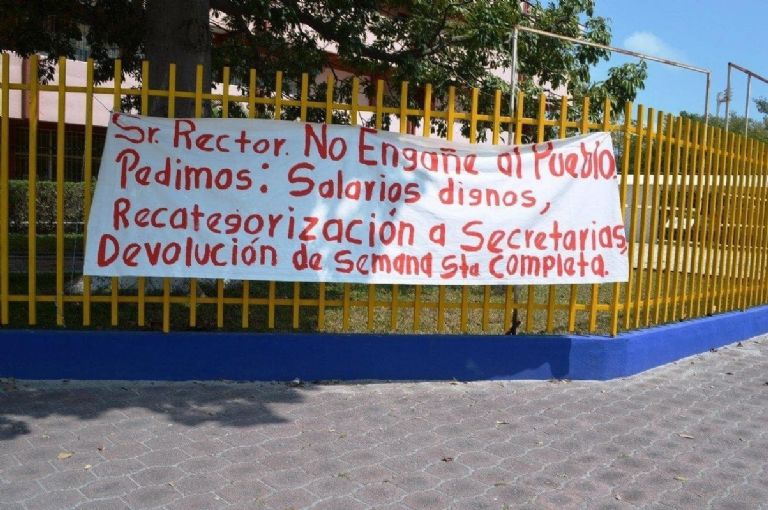 Sr. Rector. No Engañe al Pueblo.
Pedimos: Salarios dignos,
Recategorización a Secretarias,
Devolución de Semana Sta Completa.